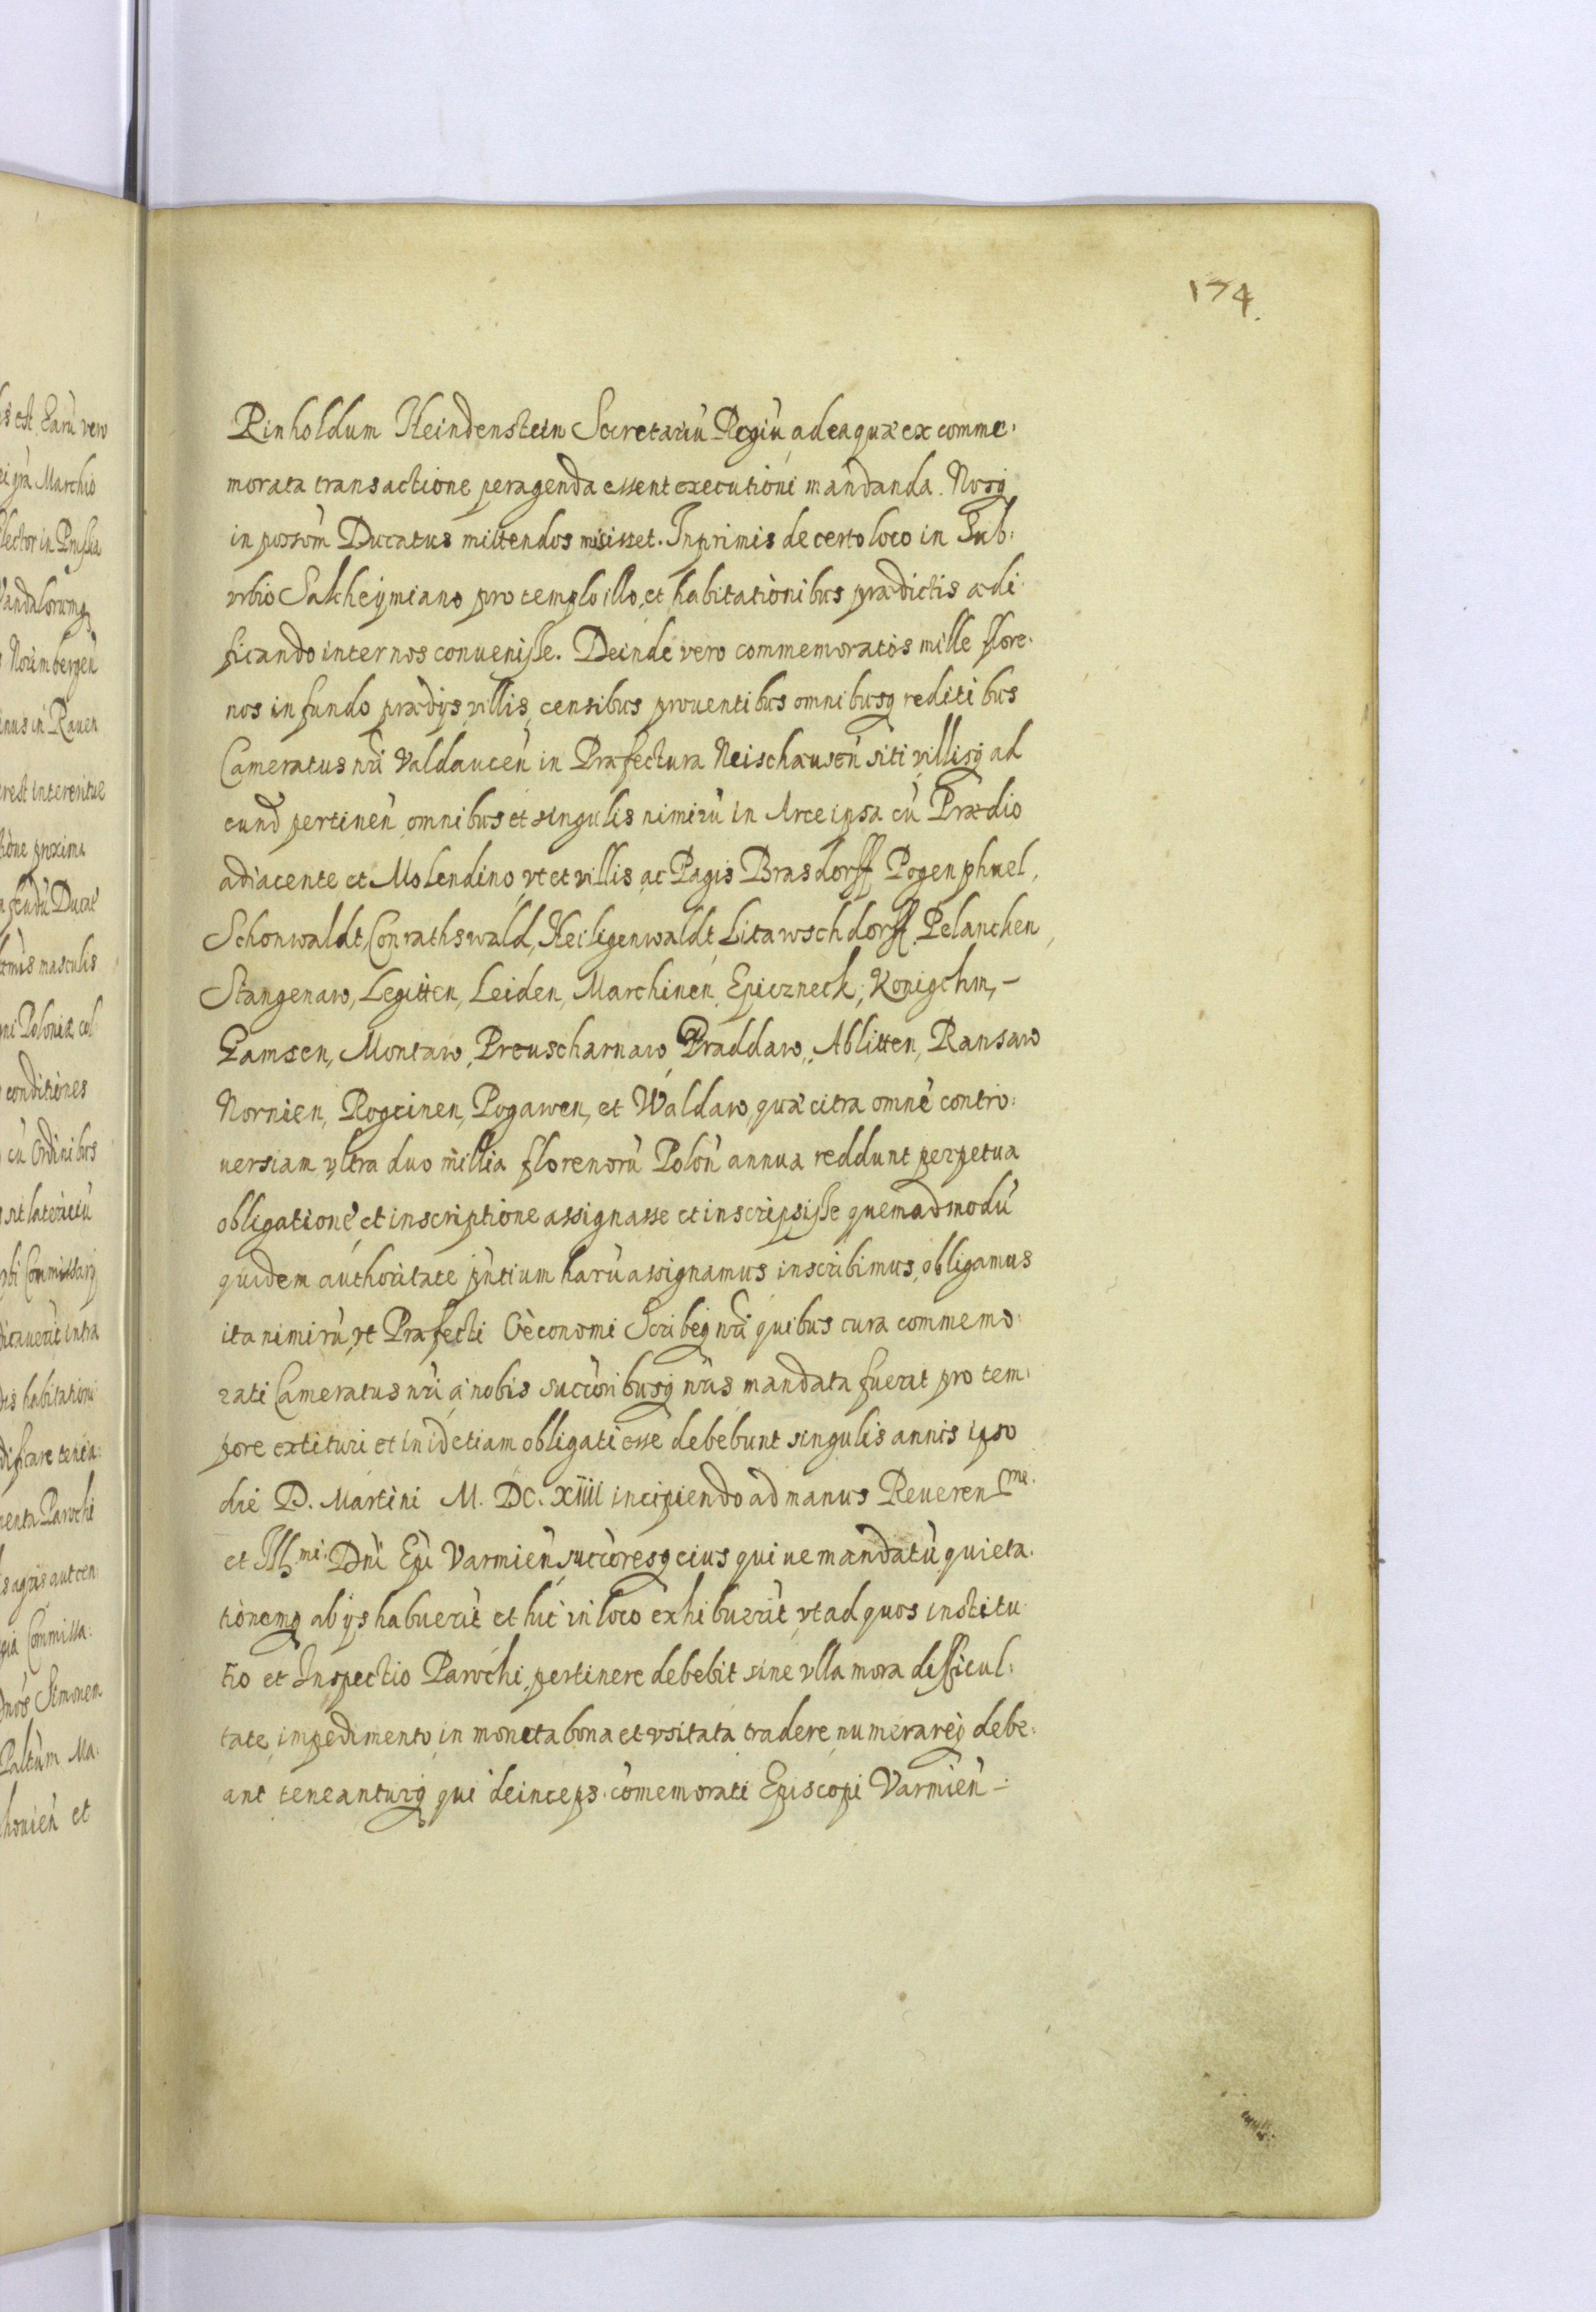 174.
Rinholdum Heindenstein Secretariũ Regiũ ad ea quæ ex comme:
morata transactione peragenda essent executioni mandanda. Nosq;
in possom̃ Ducatus mittendos misisset. Inprimis de certo loco in Sub:
vrbio Sakheymiano pro templo illo, et habitationibus prædictis ædi
ficando inter nos conuenisse. Deinde vero commemoratos mille flore:
nos in fundo prædijs, villis, censibus prouentibus omnibusq; reditibus
Cameratus nr̃i Valdaucen̄ in Præfectura Neischausen̄ siti villisq; ad
eund̃ pertinen̄ omnibus et singulis nimirũ in Arce ipsa cũ Prædio
adiacente et Molendino, vt et villis ac Pagis Brasdorff, Pogenphuel,
Schonwaldt, Conrathswald, Heiligenwaldt, Litawschdorff, Pelanchen,
Stangenaw, Legitten, Leiden, Marchinen, Epiczneck, Konigchm, –
Gamsen, Montaw, Preuscharnaw, Praddaw, Ablitten, Ransaw
Nornien, Rogeinen, Pogawen, et Waldaw, quæ citra omnẽ contro:
uersiam vltra duo millia florenorũ Polon̄ annua reddunt perpetua
obligatione, et inscriptione assignasse et inscripsisse quemadmodũ
quidem authoritate pñtium harũ assignamus inscribimus, obligamus
ita nimirũ, vt Præfecti Oeconomi Scribeq; nr̃i quibus cura commemo:
rati Cameratus nr̃i a nobis succoribusq; nr̃is mandata fuerit pro tem:
pore extituri et in id etiam obligati esse debebunt singulis annis ipso
die D. Martini M. DC. XIIII incipiendo ad manus Reueren
et Ill.mi Dñi Epĩ Varmien̄ succoresq; eius qui ve mandatũ, quieta:
tionemq; ab ijs habuerit et hic in loco exhibuerit, vt ad quos institu
tio et Inspectio Parochi, pertinere debebit sine vlla mora difficul:
tate, impedimento, in moneta bona et vsitata tradere, numerareq; debe:
ant teneanturq; qui deinceps com̃emorati Episcopi Varmien̄ –